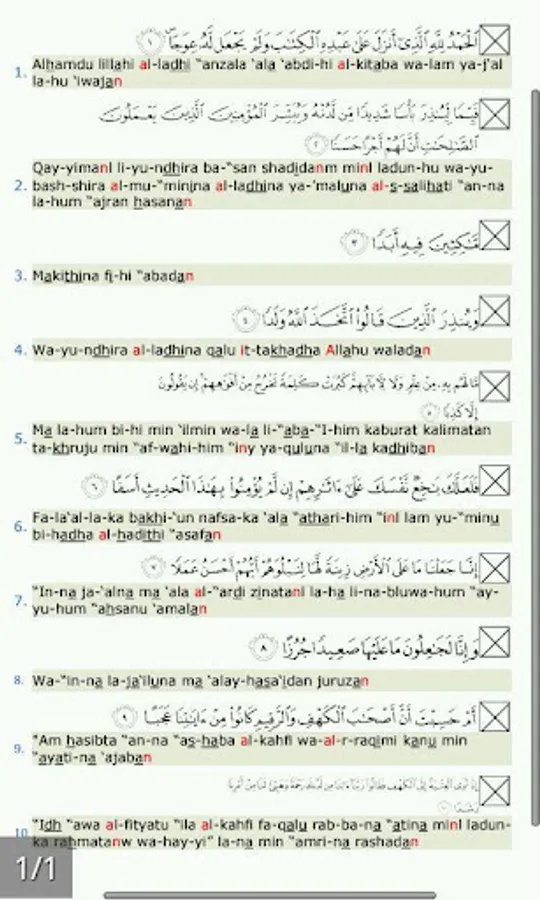 ٱلْحَمْدُ لِلَّهِ ٱلَّذِىٓ أَنزَلَ عَلَىٰ عَبْدِهِ ٱلْكِتَـٰبَ وَلَمْ يَجْعَل لَّهُۥ عِوَجَاۜ ١
1. Alhamdu lillahi al-ladhi “anzala ‘ala ‘abdi-hi al-kitaba wa-lam ya-j’al
la-hu ‘iwajan
قَيِّمًا لِّيُنذِرَ بَأْسًا شَدِيدًا مِّن لَّدُنْهُ وَيُبَشِّرَ ٱلْمُؤْمِنِينَ ٱلَّذِينَ يَعْمَلُونَ
ٱلصَّـٰلِحَـٰتِ أَنَّ لَهُمْ أَجْرًا حَسَنًا ٢
Qay-yimanl li-yu-ndhira ba-“san shadidanm minl ladun-hu wa-yu-
2. bash-shira al-mu-“minina al-ladhina ya-‘maluna al-s-salihati “an-na
la-hum “ajran hasanan
مَّـٰكِثِينَ فِيهِ أَبَدًا ٣
3. Makithina fi-hi “abadan
وَيُنذِرَ ٱلَّذِينَ قَالُوا۟ ٱتَّخَذَ ٱللَّهُ وَلَدًا ٤
4. Wa-yu-ndhira al-ladhina qalu it-takhadha Allahu waladan
مَّا لَهُم بِهِۦ مِنْ عِلْمٍ وَلَا لِـَٔابَآئِهِمْ ۚ كَبُرَتْ كَلِمَةً تَخْرُجُ مِنْ أَفْوَٰهِهِمْ ۚ إِن يَقُولُونَ
إِلَّا كَذِبًا ٥
5. Ma la-hum bi-hi min ‘ilmin wa-la li-“aba-“I-him kaburat kalimatan
ta-khruju min “af-wahi-him “iny ya-quluna “il-la kadhiban
فَلَعَلَّكَ بَـٰخِعٌ نَّفْسَكَ عَلَىٰٓ ءَاثَـٰرِهِمْ إِن لَّمْ يُؤْمِنُوا۟ بِهَـٰذَا ٱلْحَدِيثِ أَسَفًا ٦
6. Fa-la‘al-la-ka bakhi-‘un nafsa-ka ‘ala “athari-him “inl lam yu-“minu
bi-hadha al-hadithi “asafan
إِنَّا جَعَلْنَا مَا عَلَى ٱلْأَرْضِ زِينَةً لَّهَا لِنَبْلُوَهُمْ أَيُّهُمْ أَحْسَنُ عَمَلًا ٧
7. “In-na ja-‘alna ma ‘ala al-“ardi zinatanl la-ha li-na-bluwa-hum “ay-
yu-hum “ahsanu ‘amalan
وَإِنَّا لَجَـٰعِلُونَ مَا عَلَيْهَا صَعِيدًا جُرُزًا ٨
8. Wa-“in-na la-ja‘iluna ma ‘alay-hasa‘idan juruzan
أَمْ حَسِبْتَ أَنَّ أَصْحَـٰبَ ٱلْكَهْفِ وَٱلرَّقِيمِ كَانُوا۟ مِنْ ءَايَـٰتِنَا عَجَبًا ٩
9. “Am hasibta “an-na “as-haba al-kahfi wa-al-r-raqimi kanu min
“ayati-na ‘ajaban
إِذْ أَوَى ٱلْفِتْيَةُ إِلَى ٱلْكَهْفِ فَقَالُوا۟ رَبَّنَآ ءَاتِنَا مِن لَّدُنكَ رَحْمَةً وَهَيِّئْ لَنَا مِنْ أَمْرِنَا
رَشَدًا ١٠
10. “Idh “awa al-fityatu “ila al-kahfi fa-qalu rab-ba-na “atina minl ladun-
ka rahmatanw wa-hay-yi” la-na min “amri-na rashadan
1/1